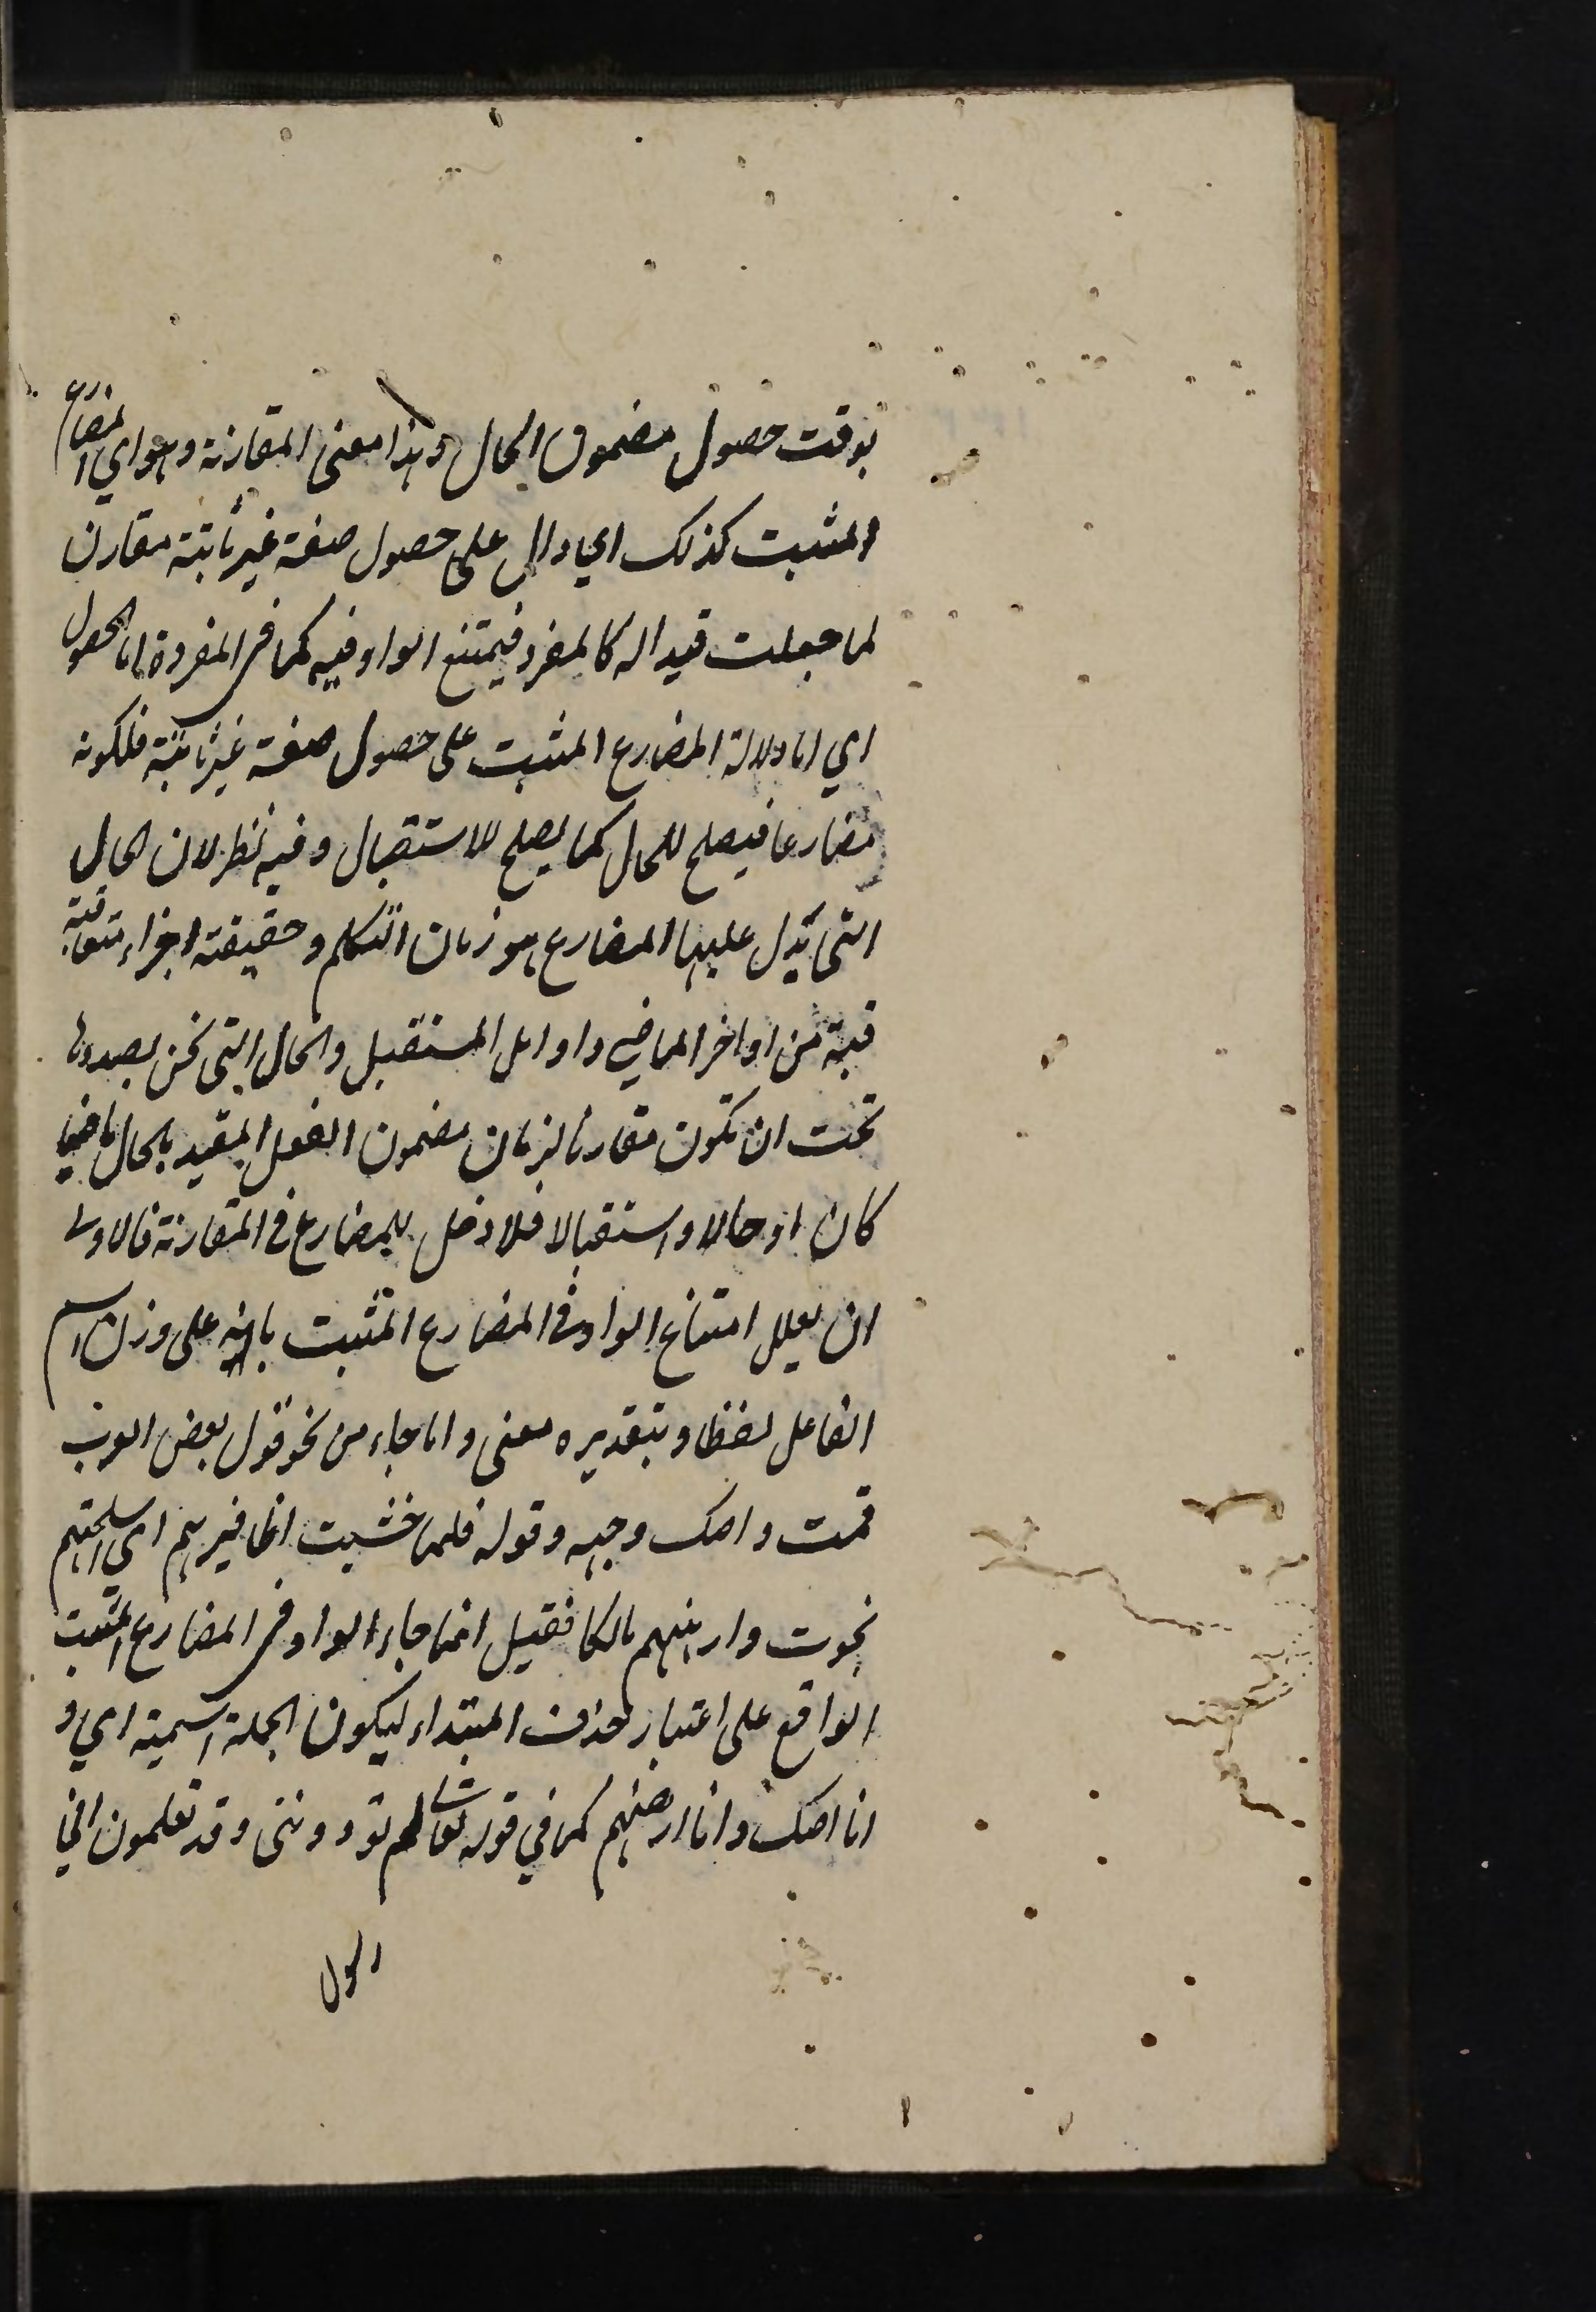 بوقت حصول مضمون الحال وهذا معنى المقارنة وهو اي المضارع
المثبت كذلك اي دال على حصول صفة غير ثابتة مقارن
لما جعلت قيدا له كالمفرد فيمتنع الواو فيه كما في المفردة اما الحصول
اي اما دلالة المضارع المثبت على حصول صفة غير ثابتة فلكونه
مضارعا فيصلح للحال كما يصلح للاستقبال وفيه نظر لان الحال
التي تدل عليها المضارع هو زمان التكلم وحقيقته اجزاء متعاقبة
قبة من اواخر الماضي واوايل المستقبل والحال التي نحن بصددها
تحت ان تكون مقارنا لزمان مضمون الفعل المقيد بالحال ماضيا
كان او حالا واستقبالا فلا دخل للمضارع في المقارنة فالاولى
ان يعلل امتناع الواو في المضارع المثبت بانه على وزن اسم
الفاعل لفظا وبتقديره معنى واما جاء من نحو قول بعض العرب
قمت واصك وجهه وقوله فلما خشيت اظافيرهم اي اسلحتهم
نجوت وارهنهم مالكا فقيل انما جاء الواو في المضارع المثبت
الواقع على اعتبار حذف المبتداء ليكون الجملة اسمية اي و
انا اصك وانا ارهنهم كما في قوله تعالى لم تؤذونني وقد تعلمون اني
رسول